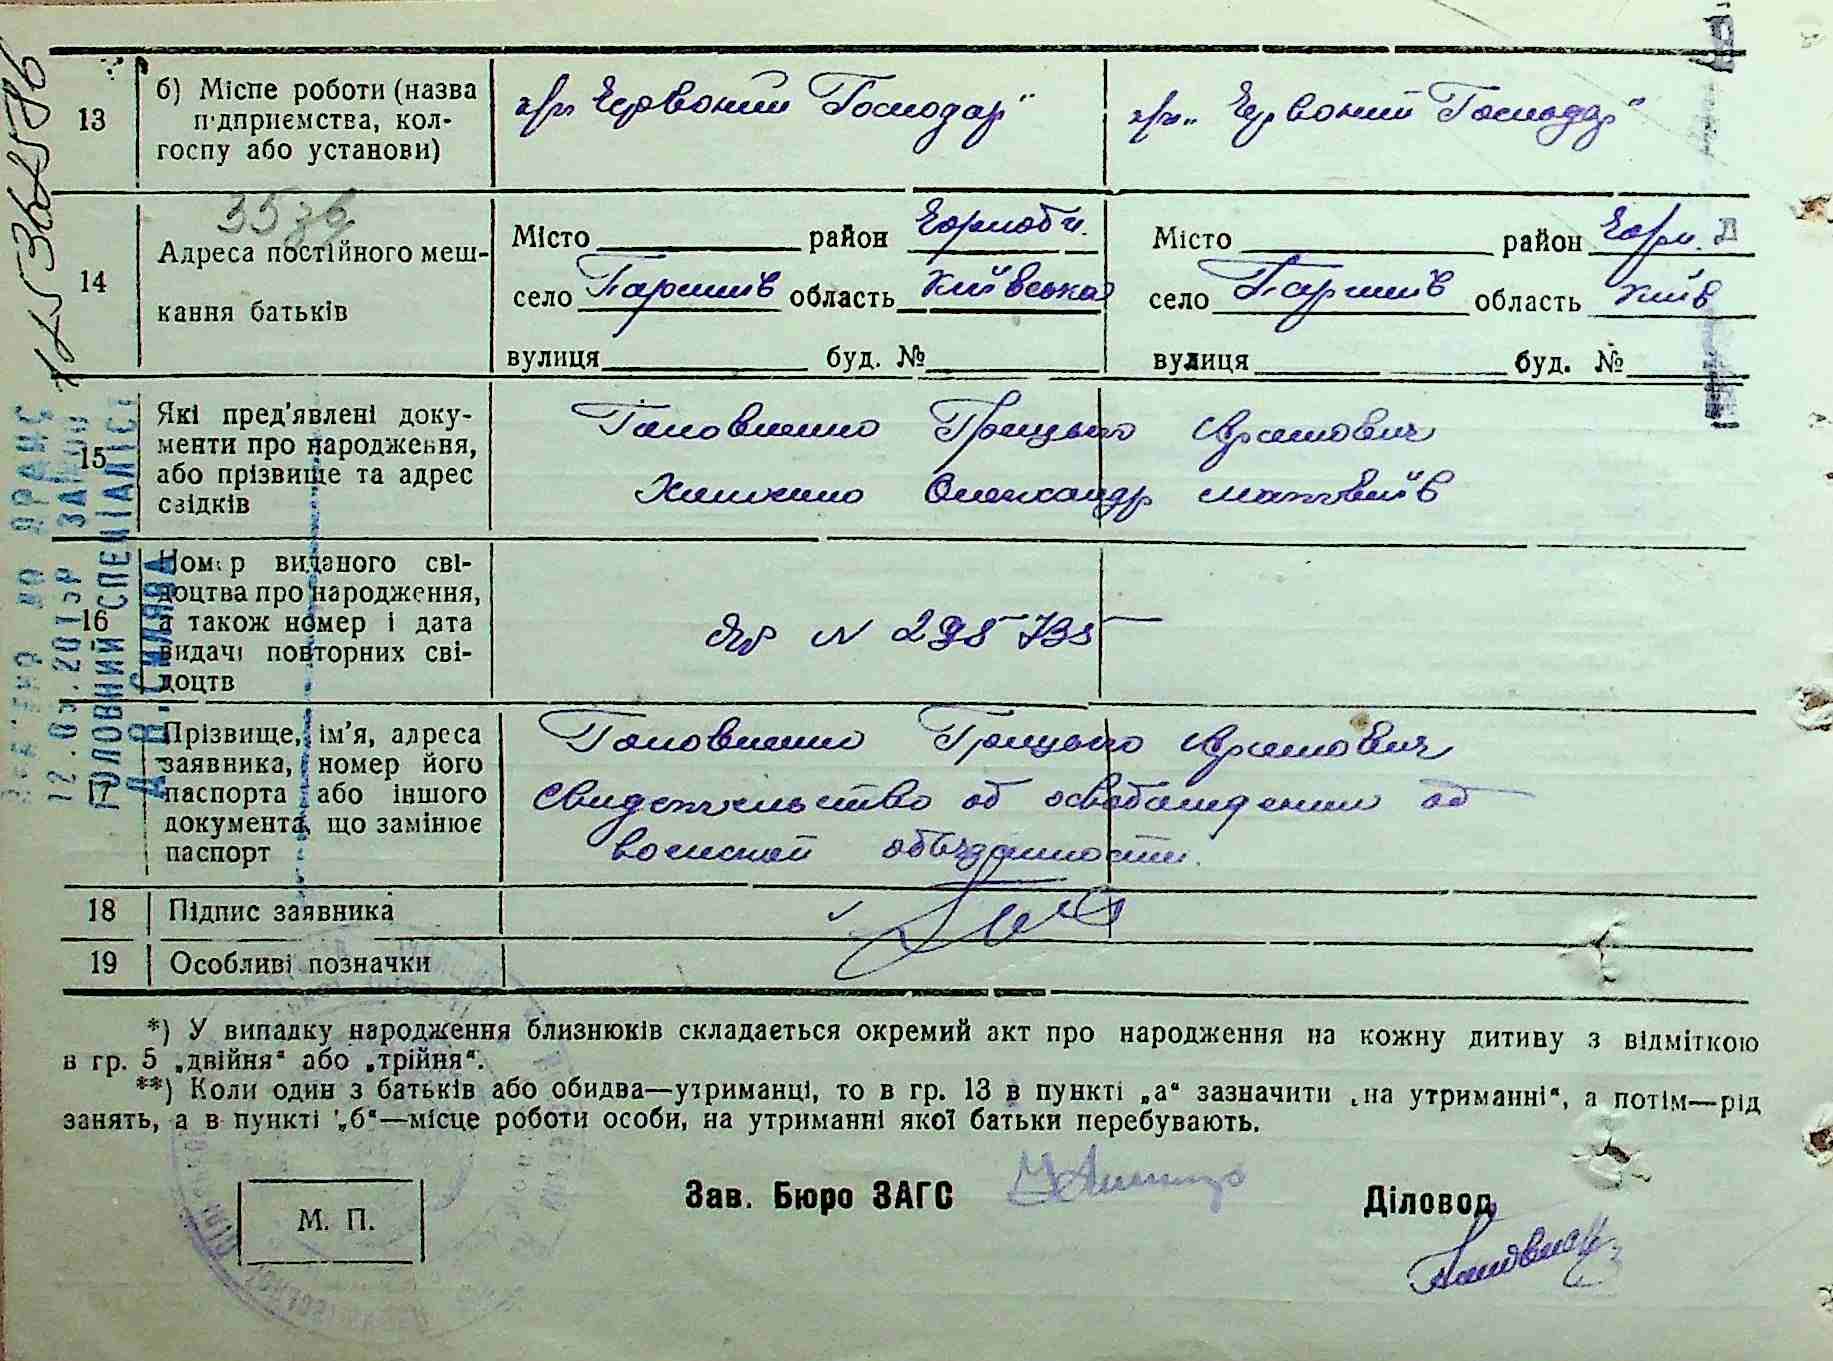 13
б) Місце роботи (назва
підприємства, кол-
госпу або установи)
к/г „Червоний Господар"
к/г „Червоний Господар"
14
35
Адреса постійного меш-
кання батьків
Місто район Чорноб.
село Паришів область Київська
вулиця буд. №
Місто район Чорн.
село Паришів область Київ
вулиця буд. №
15
Які пред'явлені доку-
менти про народження,
або прізвище та адрес
свідків
Головненко Грицько
Олександр
16
Номер виданого сві-
доцтва про народження,
а також номер і дата
видачі повторних сві-
доцтв
N 295735
17
Прізвище, ім'я, адреса
заявника, номер його
паспорта або іншого
документа, що замінює
паспорт
Головненко Грицько
Свидетельство об освобождении об
воинской обязанности.
18
Підпис заявника
19
Особливі позначки
*) У випадку народження близнюків складається окремий акт про народження на кожну дитину з відміткою
в гр. 5 „двійня" або „трійня".
**) Коли один з батьків або обидва—утриманці, то в гр. 13 в пункті „а" зазначити „на утриманні", а потім—рід
занять, а в пункті „б"—місце роботи особи, на утриманні якої батьки перебувають.
М. П.
Зав. Бюро ЗАГС
Діловод
ГОЛОВНИЙ СПЕЦІАЛІСТ